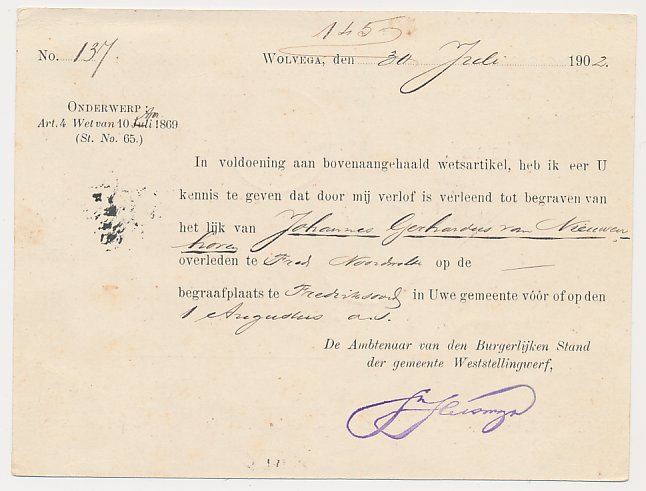 145
No. 137. WOLVEGA, den 30 Juli 1902.
ONDERWERP:
Apr
Art. 4 Wet van 10 Juli 1869
(St. No. 65.)
In voldoening aan bovenaangehaald wetsartikel, heb ik eer U
kennis te geven dat door mij verlof is verleend tot begraven van
het lijk van Johannes Gerhardus van Nieuwen
hoven
overleden te Fred Noordwolde op de —
begraafplaats te Frederiksoord in Uwe gemeente vóór of op den
1 Augustus a.s.
De Ambtenaar van den Burgerlijken Stand
der gemeente Weststellingwerf,